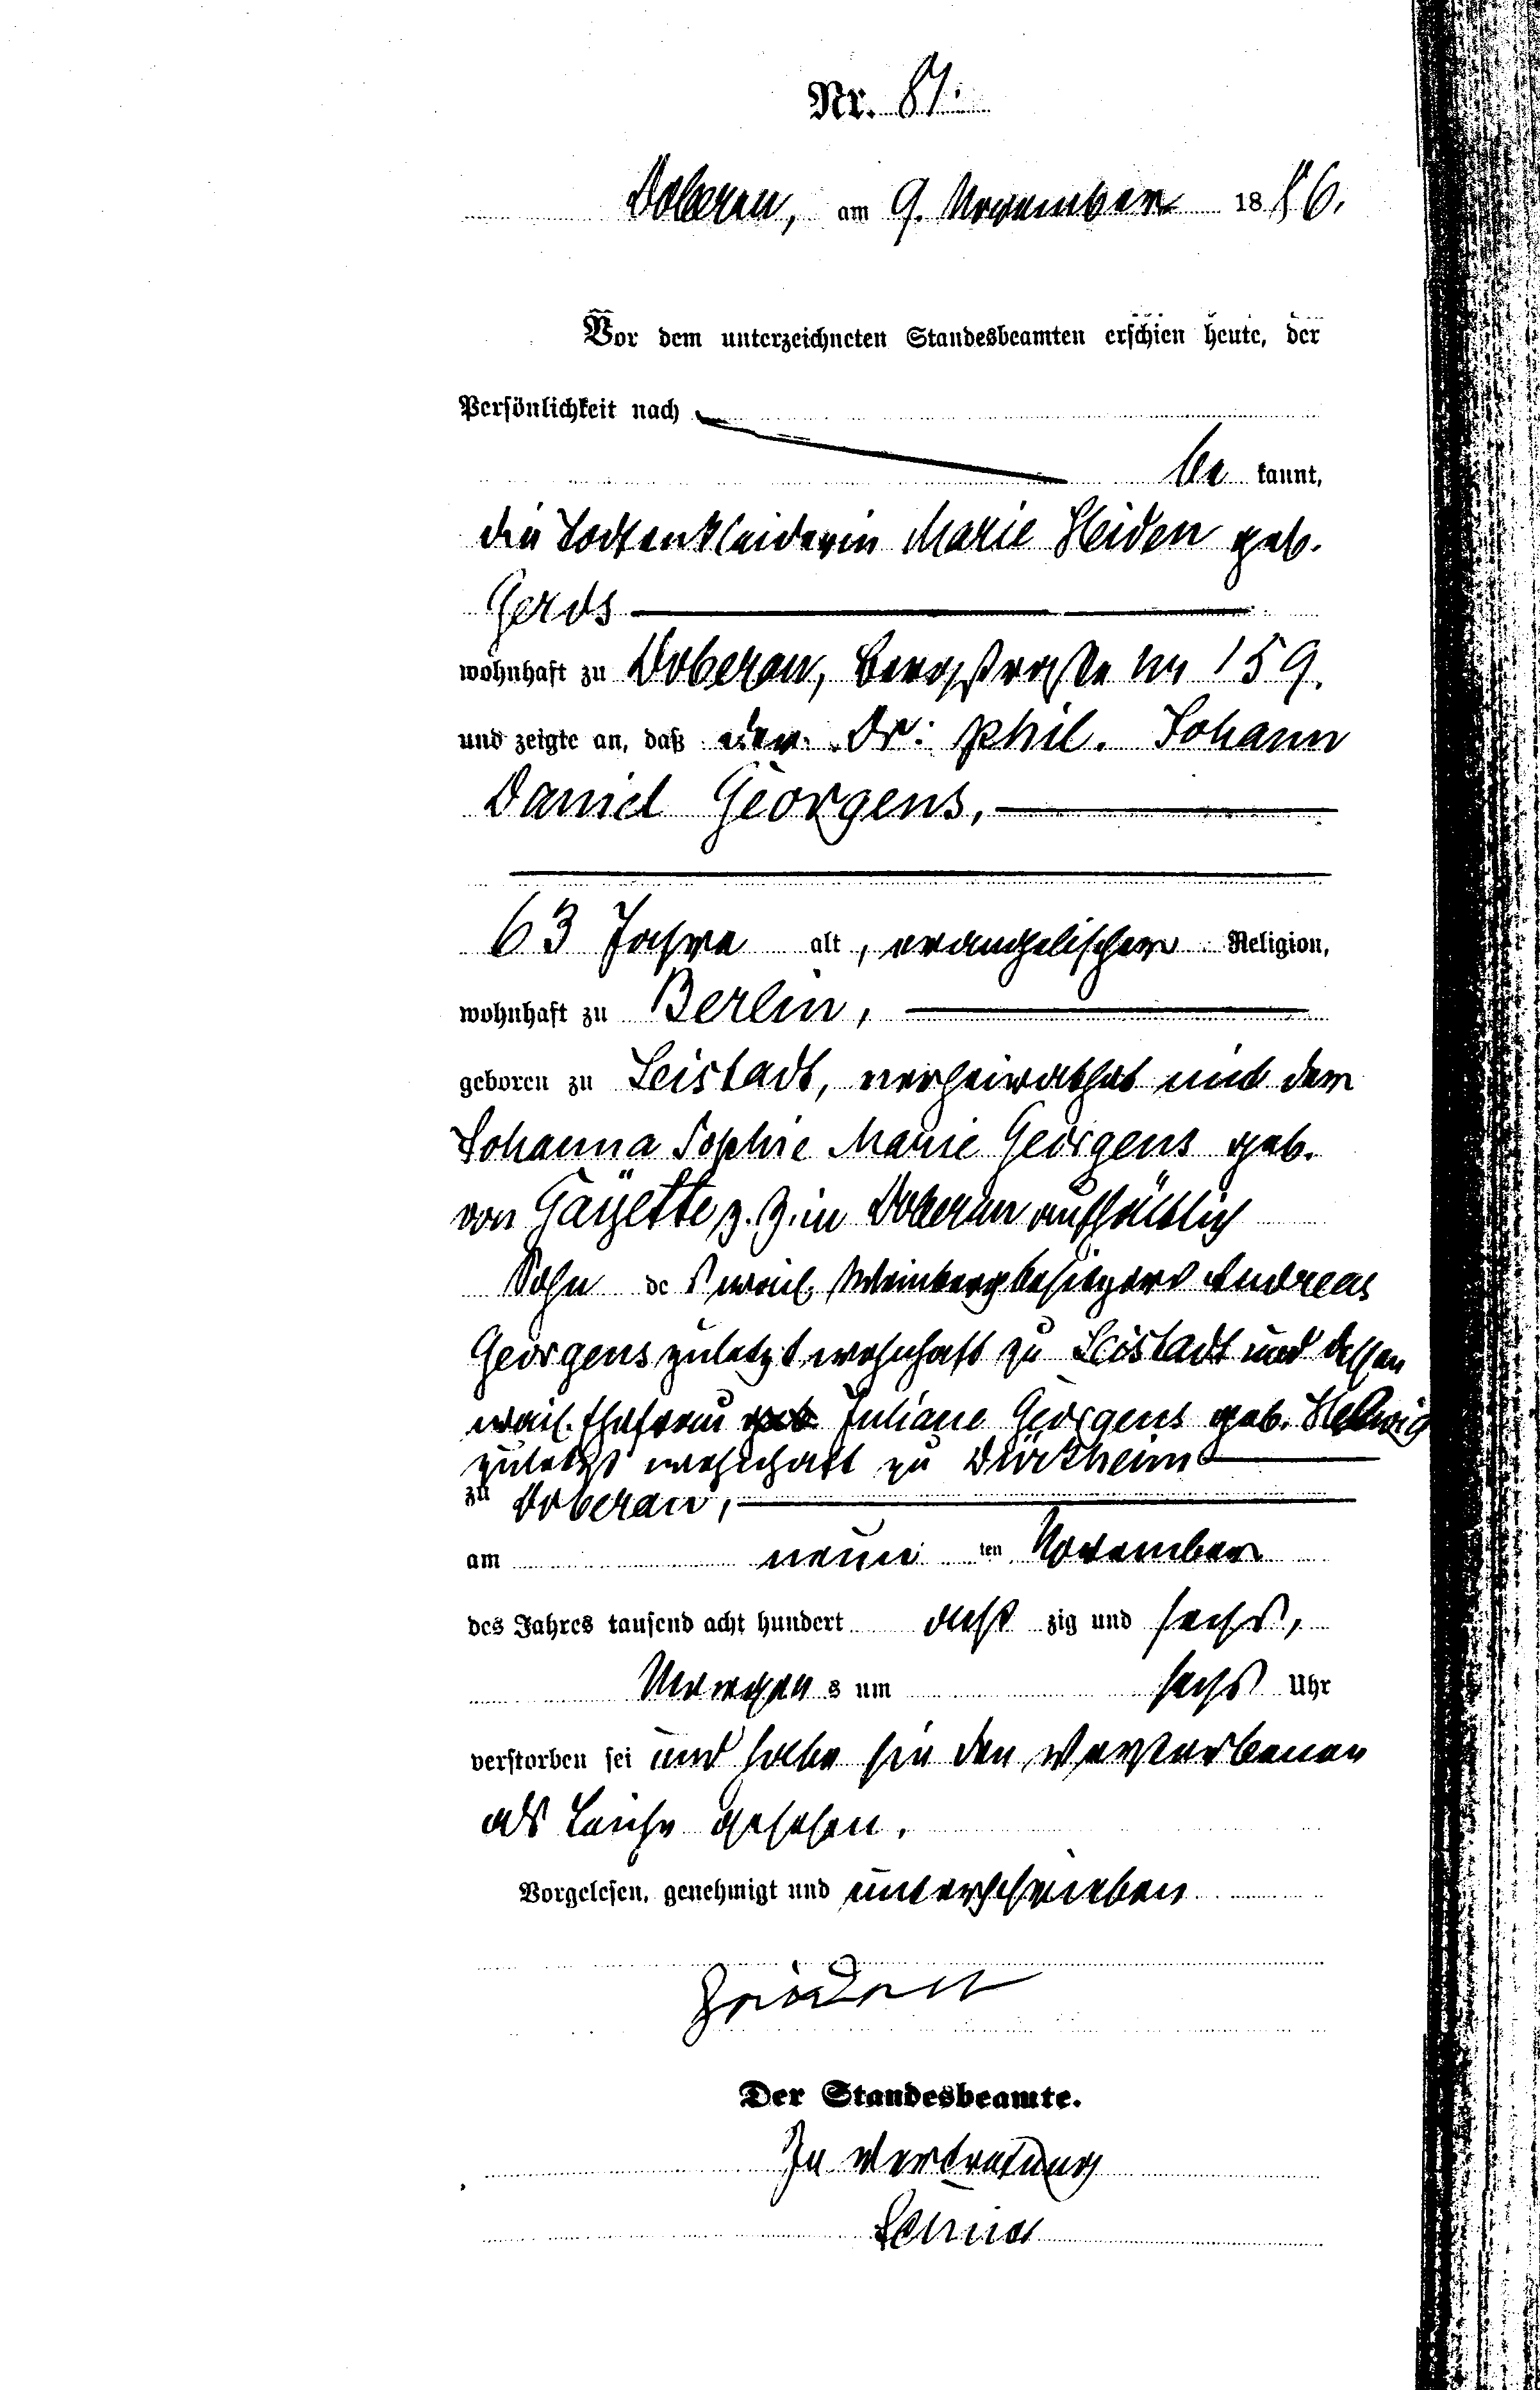 Nr. 81.
Doberan, am 9. November 1886.
Vor dem unterzeichneten Standesbeamten erschien heute, der
Persönlichkeit nach
be kannt,
die Todtenkleiderin Marie Heiden geb.
Gerds
wohnhaft zu Doberan, Bergstraße No 159.
und zeigte an, daß der Dr. phil. Johann
Daniel Georgens,
63 Jahre alt, evangelischer Religion,
wohnhaft zu Berlin,
geboren zu Leistadt, verheirathet mit der
Johanna Sophie Marie Georgens geb.
von Gayette z. Z. in Doberan aufhältlich
Sohn des weil. Weinbergbesitzers Andreas
Georgens zuletzt wohnhaft zu Leistadt und dessen
weil. Ehefrau Juliane Georgens geb. Helwig
zuletzt wohnhaft zu Dürkheim
zu Doberan,
am neun ten November
des Jahres tausend acht hundert acht zig und sechs,
Morgen s um sechs Uhr
verstorben sei und habe sie den Verstorbenen
als Leiche gesehen.
Vorgelesen, genehmigt und unterschrieben
Heiden
Der Standesbeamte.
In Vertretung